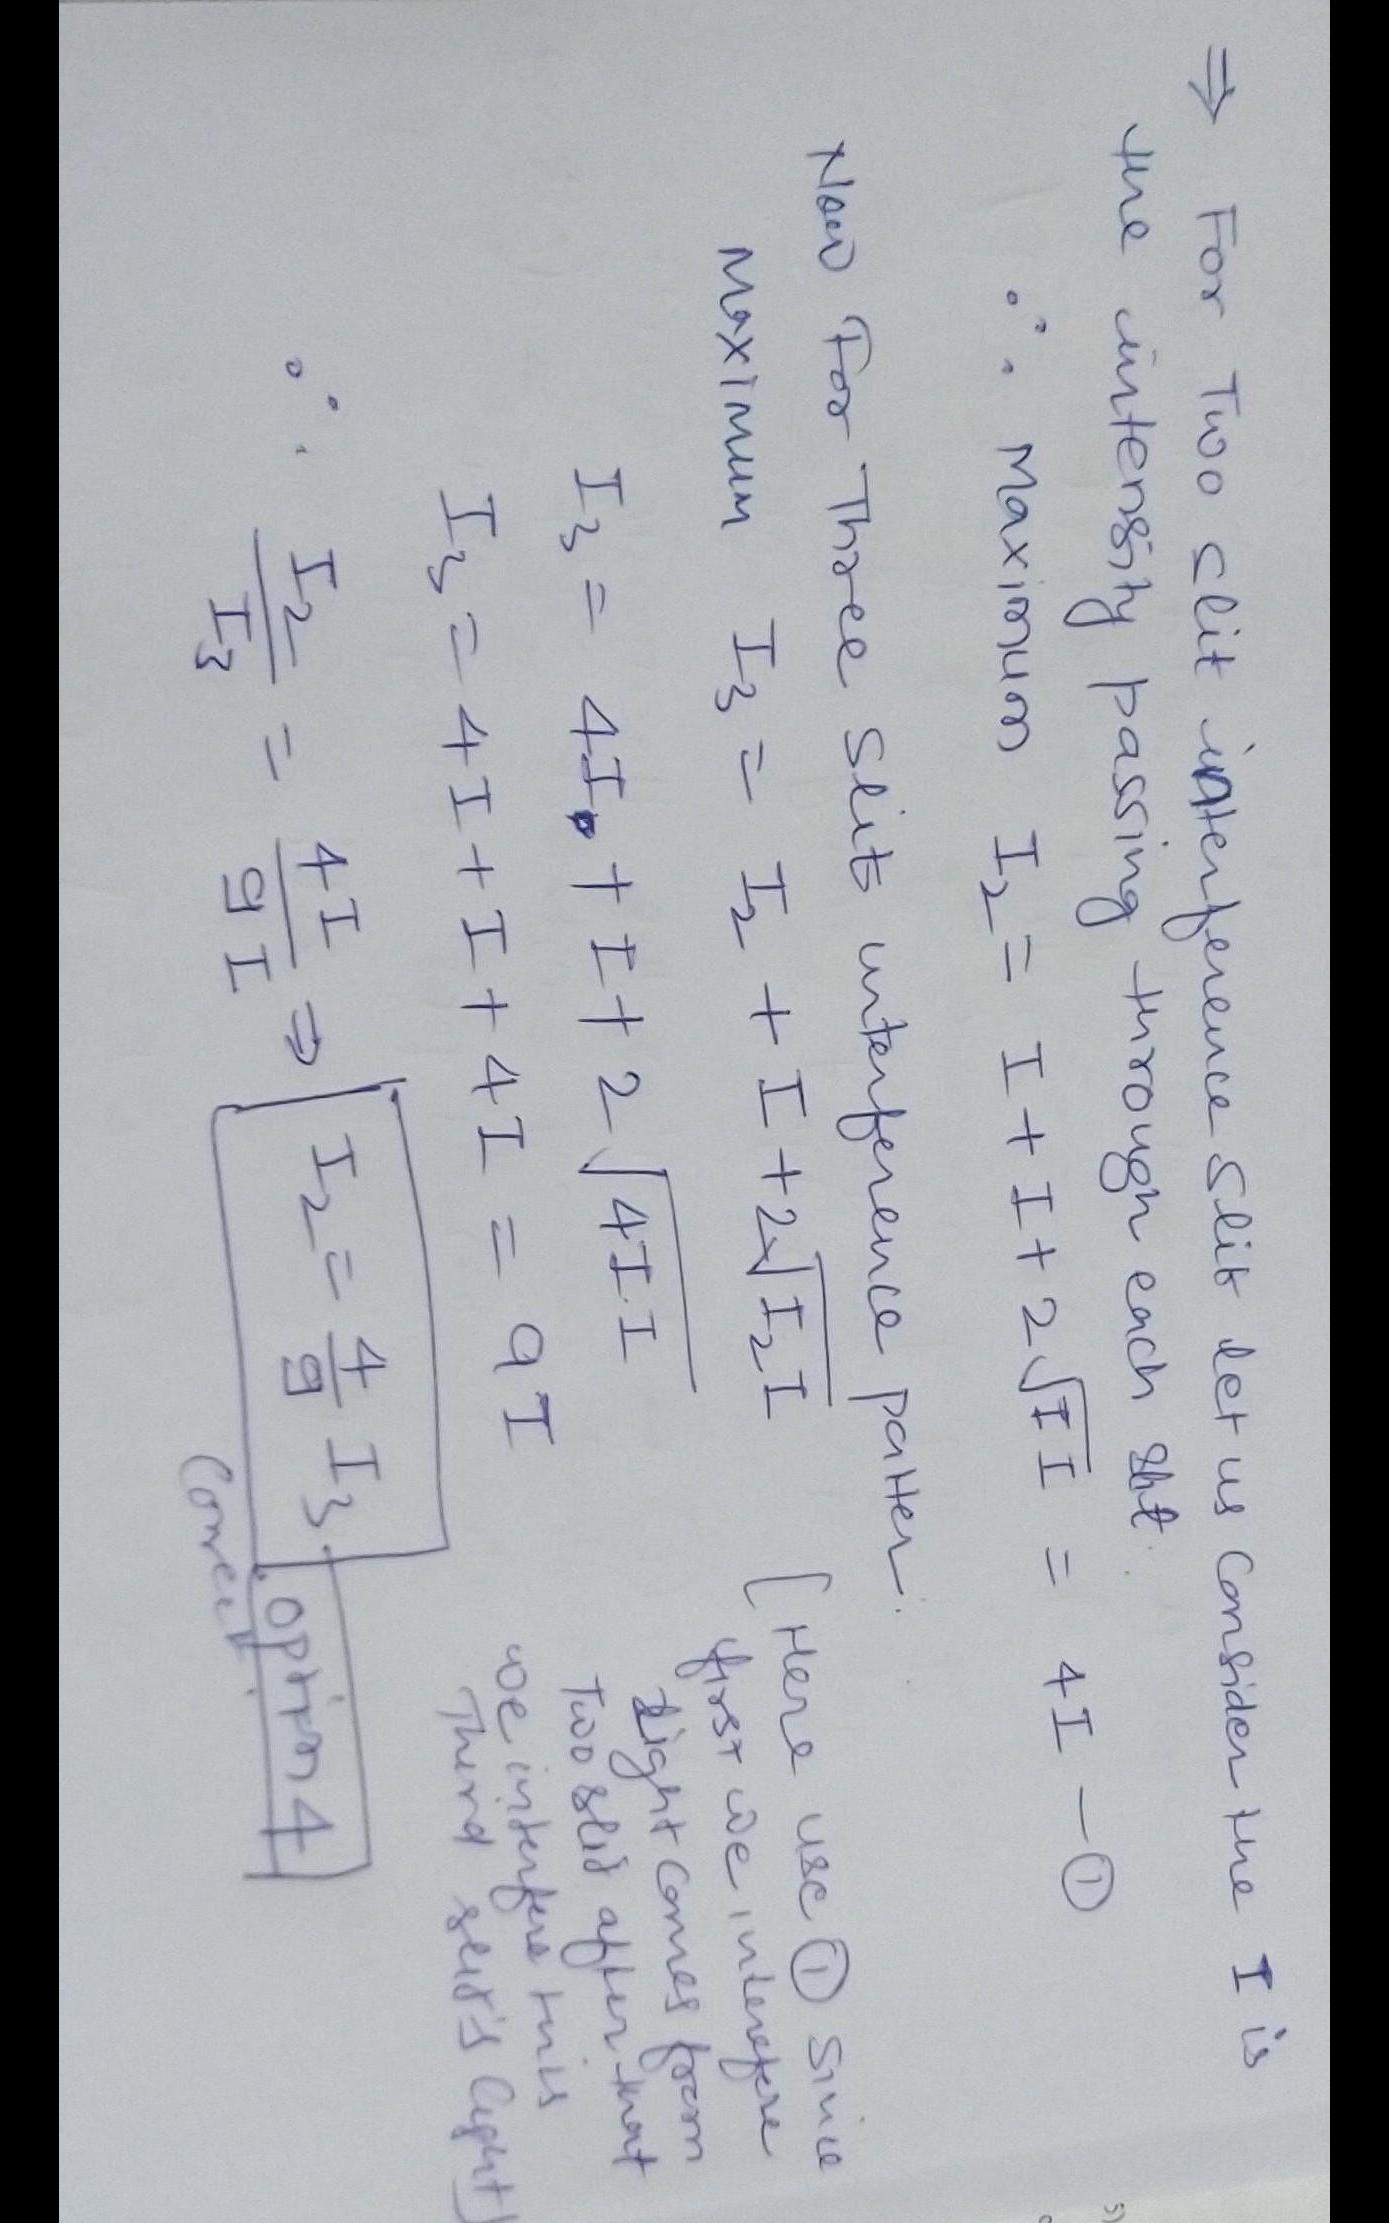 ⇒ For Two slit interference slit let us consider the I is
the intensity passing through each slit.
∴ Maximum I₂ = I + I + 2√II = 4I — ①
Now For Three slit interference patter.
Maximum I₃ = I₂ + I + 2√I₂I
[Here use ① Since
first we interefere
light comes from
Two slit after that
we interfere this
Third slit's light]
I₃ = 4I + I + 2√4I.I
I₃ = 4I + I + 4I = 9I
∴ I₂/I₃ = 4I/9I ⇒ I₂ = 4/9 I₃
option 4
Correct